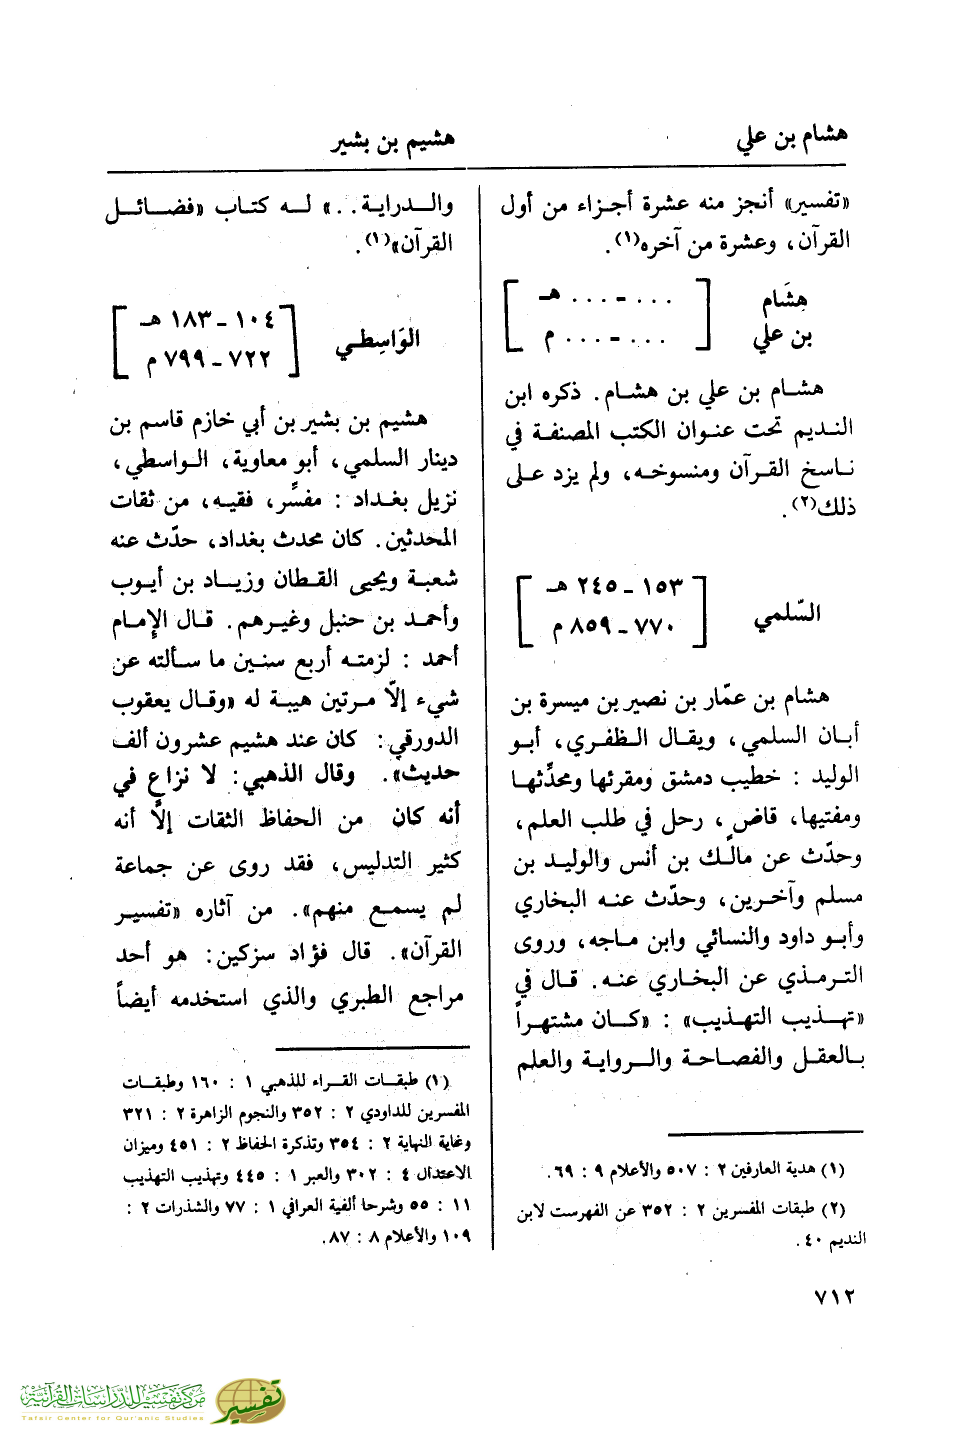 هشام بن علي
هشيم بن بشير
«تفسير» أنجز منه عشرة أجزاء من أول
القرآن، وعشرة من آخره(١).
هِشَام
بن علي
[ ... - ... هـ
... - ... م ]
هشام بن علي بن هشام. ذكره ابن
النديم تحت عنوان الكتب المصنفة في
ناسخ القرآن ومنسوخه، ولم يزد على
ذلك(٢).
السّلمي
[ ١٥٣ - ٢٤٥ هـ
٧٧٠ - ٨٥٩ م ]
هشام بن عمّار بن نصير بن ميسرة بن
أبان السلمي، ويقال الظفري، أبو
الوليد : خطيب دمشق ومقرئها ومحدِّثها
ومفتيها، قاضٍ، رحل في طلب العلم،
وحدّث عن مالك بن أنس والوليد بن
مسلم وآخرين، وحدّث عنه البخاري
وأبو داود والنسائي وابن ماجه، وروى
الترمذي عن البخاري عنه. قال في
«تهذيب التهذيب» : «كان مشتهراً
بالعقل والفصاحة والرواية والعلم
(١) هدية العارفين ٢ : ٥٠٧ والأعلام ٩ : ٦٩.
(٢) طبقات المفسرين ٢ : ٣٥٢ عن الفهرست لابن
النديم ٤٠.
والدراية..» له كتاب «فضائل
القرآن»(١).
الوَاسِطي
[ ١٠٤ - ١٨٣ هـ
٧٢٢ - ٧٩٩ م ]
هشيم بن بشير بن أبي خازم قاسم بن
دينار السلمي، أبو معاوية، الواسطي،
نزيل بغداد : مفسِّر، فقيه، من ثقات
المحدثين. كان محدث بغداد، حدّث عنه
شعبة ويحيى القطان وزياد بن أيوب
وأحمد بن حنبل وغيرهم. قال الإمام
أحمد : لزمته أربع سنين ما سألته عن
شيء إلّا مرتين هيبة له «وقال يعقوب
الدورقي: كان عند هشيم عشرون ألف
حديث». وقال الذهبي: لا نزاع في
أنه كان من الحفاظ الثقات إلاَّ أنه
كثير التدليس، فقد روى عن جماعة
لم يسمع منهم». من آثاره «تفسير
القرآن». قال فؤاد سزكين: هو أحد
مراجع الطبري والذي استخدمه أيضاً
(١) طبقات القراء للذهبي ١ : ١٦٠ وطبقات
المفسرين للداودي ٢ : ٣٥٢ والنجوم الزاهرة ٢ : ٣٢١
وغاية النهاية ٢ : ٣٥٤ وتذكرة الحفاظ ٢ : ٤٥١ وميزان
الاعتدال ٤ : ٣٠٢ والعبر ١ : ٤٤٥ وتهذيب التهذيب
١١ : ٥٥ وشرحا ألفية العراقي ١ : ٧٧ والشذرات ٢ :
١٠٩ والأعلام ٨ : ٨٧.
٧١٢
مركز تفسير للدراسات القرآنية
Tafsir Center for Qur'anic Studies
تفسير